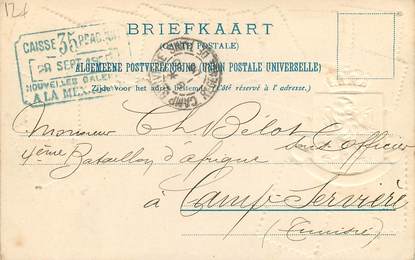 124
BRIEFKAART
(CARTE POSTALE)
ALGEMEENE POSTVEREENIGING (UNION POSTALE UNIVERSELLE)
Zijde voor het adres bestemd. (Côté réservé à l'adresse.)
CAISSE 35
SEPT
NOUVELLES GALERIES
A LA MÉN
CAMP
Monsieur Ch Bélot Sous Officier
4ème Bataillon d'afrique
à Camp Servière
(Tunisie)